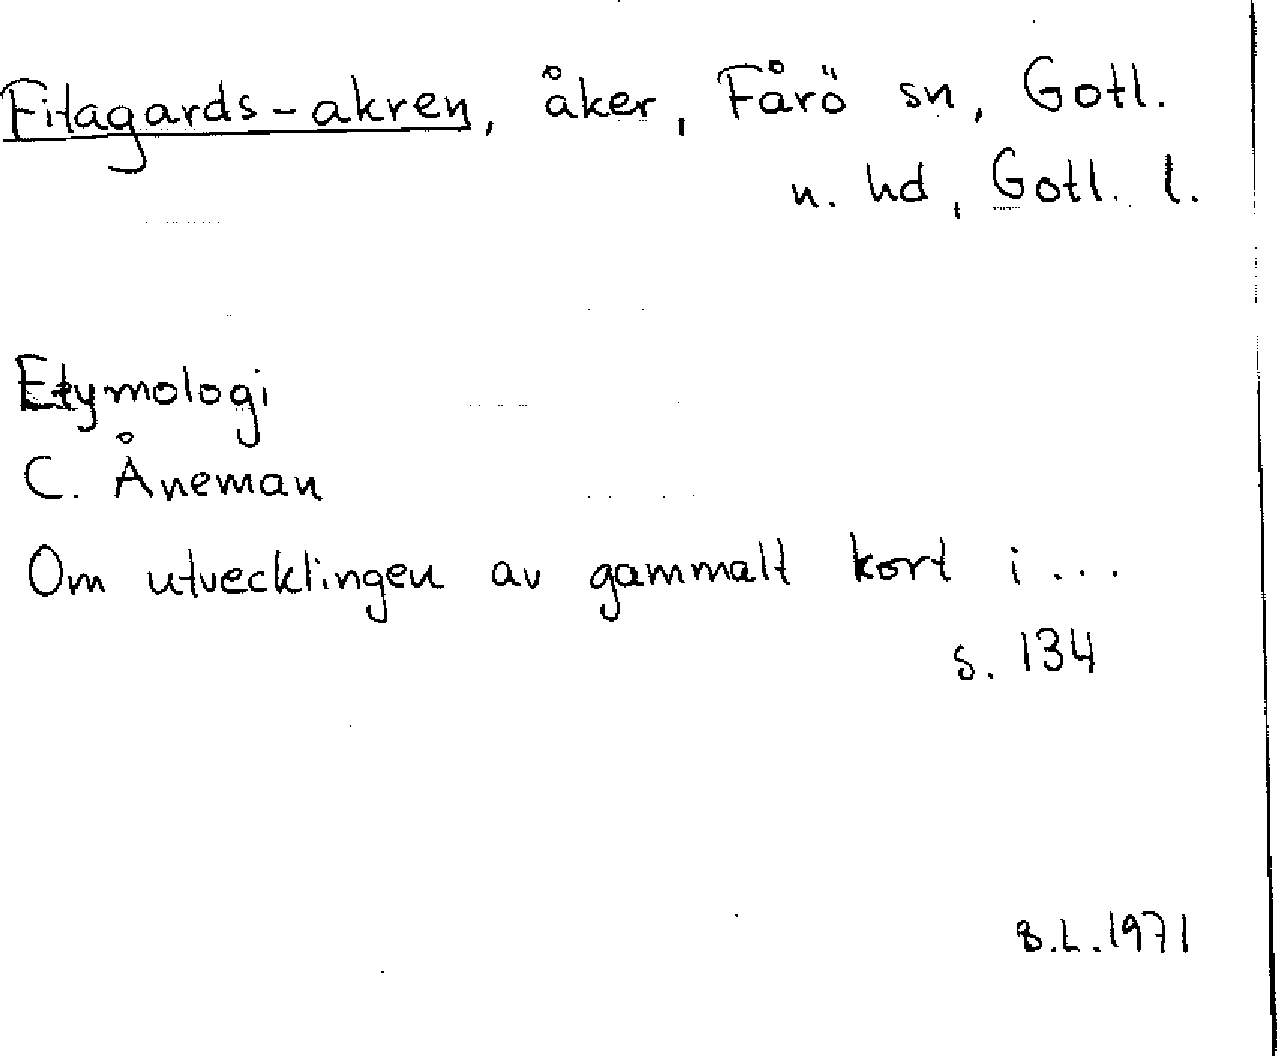 Fitagards-akren, åker, Fårö sn, Gotl.
n. hd, Gotl. l.
Etymologi
C. Åneman
Om utvecklingen av gammalt kort i...
s. 134
B.L.1971